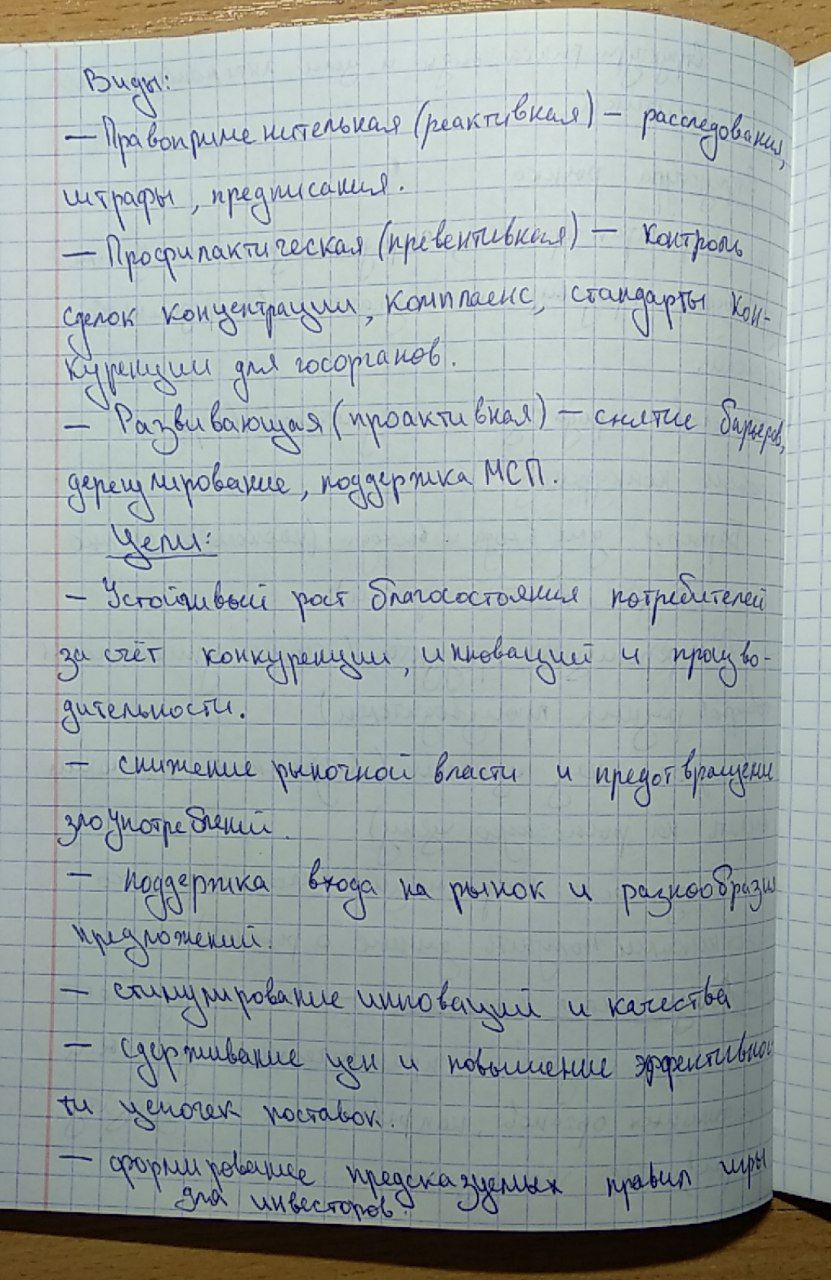 Виды:
— Правоприменительная (реактивная) — расследования,
штрафы, предписания.
— Профилактическая (превентивная) — контроль
сделок концентрации, комплаенс, стандарты кон-
куренции для госорганов.
— Развивающая (проактивная) — снятие барьеров,
дерегулирование, поддержка МСП.
Цели:
— Устойчивый рост благосостояния потребителей
за счёт конкуренции, инноваций и произво-
дительности.
— снижение рыночной власти и предотвращение
злоупотреблений.
— поддержка входа на рынок и разнообразия
предложений.
— стимулирование инноваций и качества
— сдерживание цен и повышение эффективнос
ти цепочек поставок.
— формирование предсказуемых правил игры
для инвесторов.